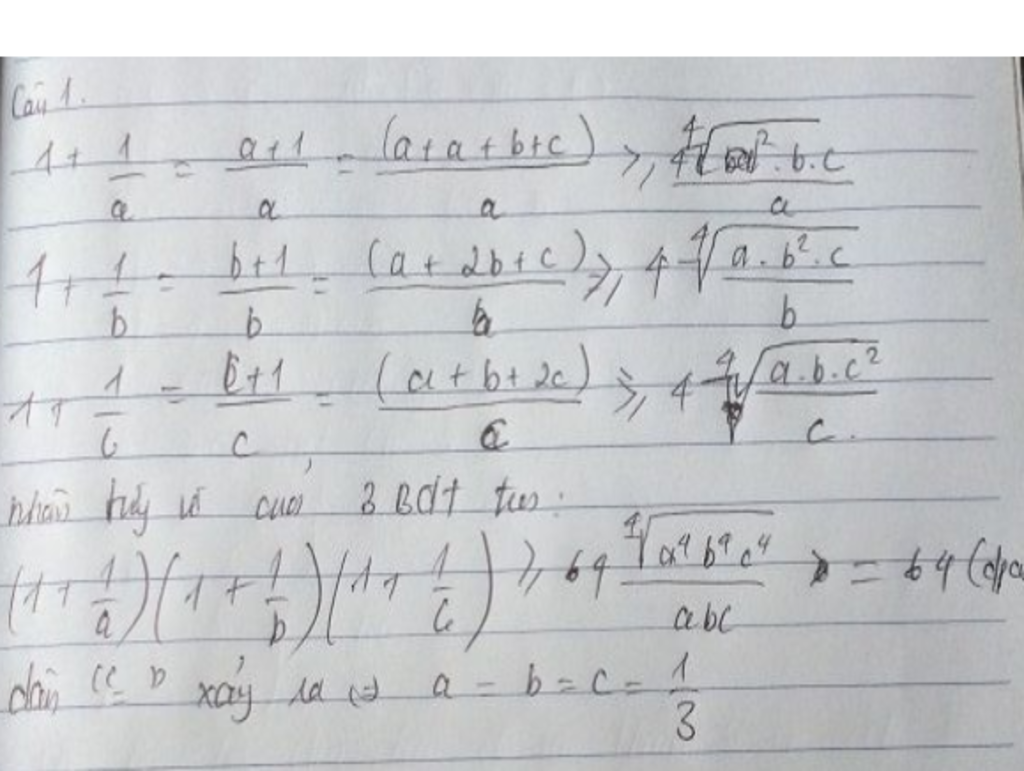 Câu 1.
1 + 1/a = (a+1)/a = (a+a+b+c)/a ≥ 4∜(a².b.c)/a
1 + 1/b = (b+1)/b = (a+2b+c)/b ≥ 4∜(a.b².c)/b
1 + 1/c = (c+1)/c = (a+b+2c)/c ≥ 4∜(a.b.c²)/c.
nhân từng vế của 3 BĐT trên:
(1 + 1/a)(1 + 1/b)(1 + 1/c) ≥ 64 ∜(a⁴b⁴c⁴)/abc = 64 (đpc
dấu "=" xảy ra (=) a = b = c = 1/3